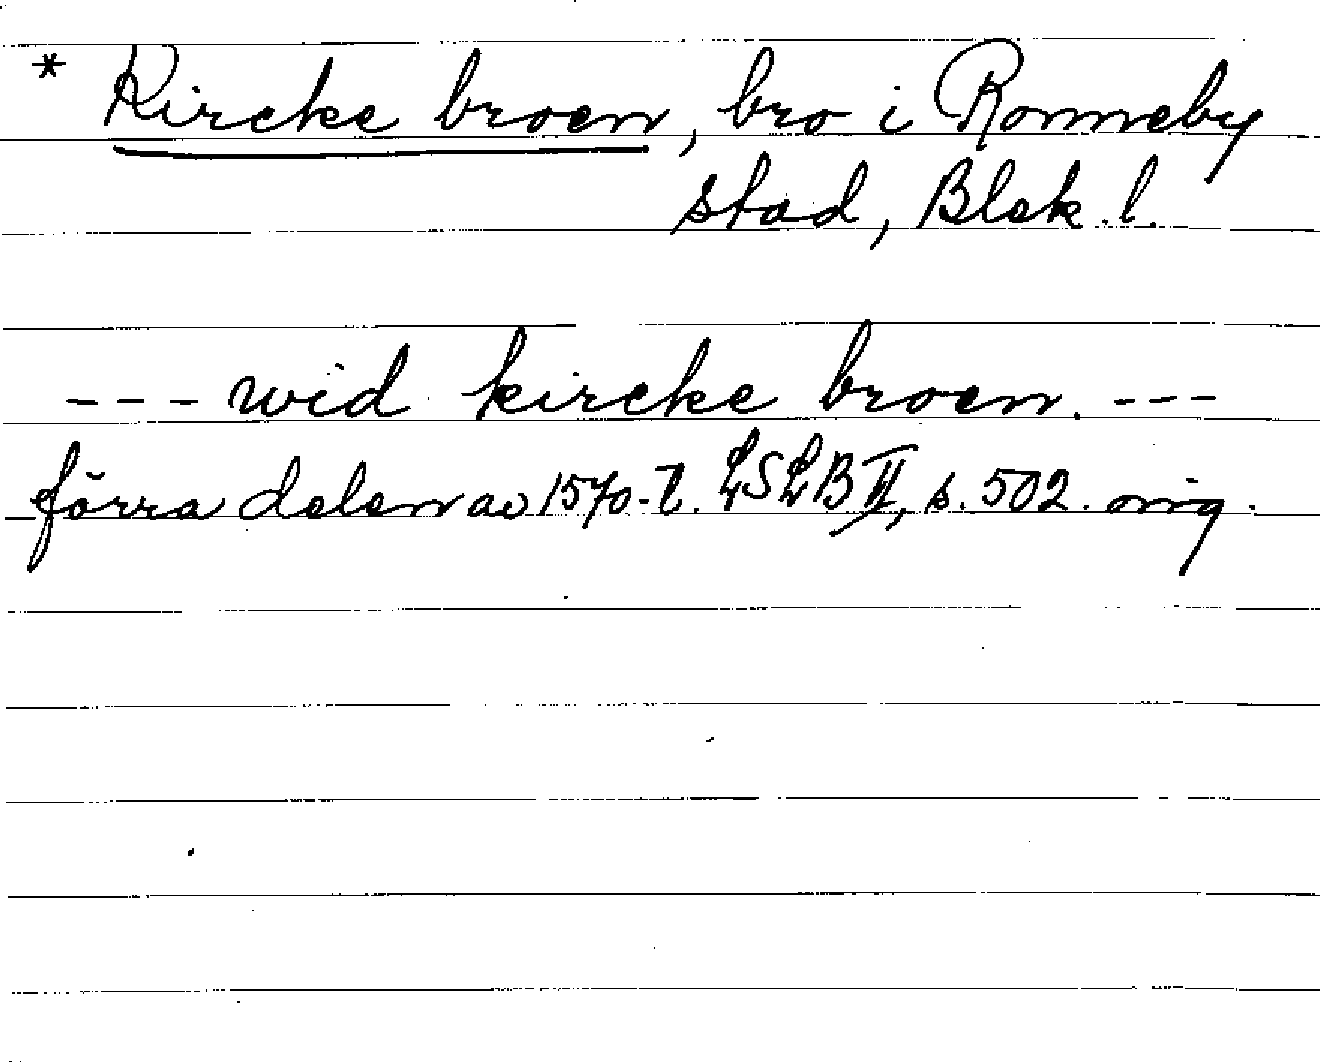 * Kircke broen, bro i Ronneby
stad, Blek. l.
--- wid kircke broen. ---
förra delen av 1570-t. LSLB II, s. 502. orig.